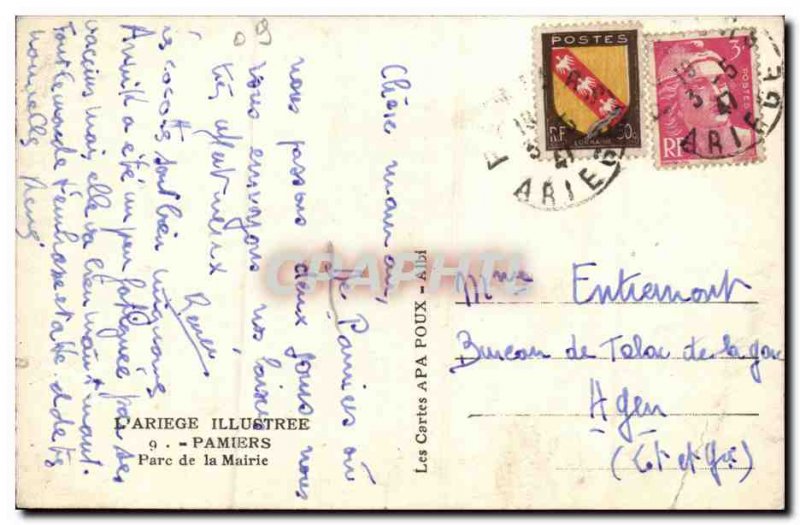 Chère maman,
De Pamiers où
nous passons deux jours nous
vous envoyons nos baisers
très affectueux
Renée
les cocotte sont bien mignons
Annick a été un peu fatiguée par ses
vaccins mais elle va bien maintenant.
Tout le monde t'embrasse et attend de tes
nouvelles René
L'ARIEGE ILLUSTREE
9. - PAMIERS
Parc de la Mairie
Les Cartes APA POUX - Albi
CRAPHTI
POSTES
RF
50c
LORRAINE
ARIEGE
3F
POSTES
RF
ARIEGE
Mme Entremont
Bureau de Tabac de la gare
Agen
(Lot et Gne)